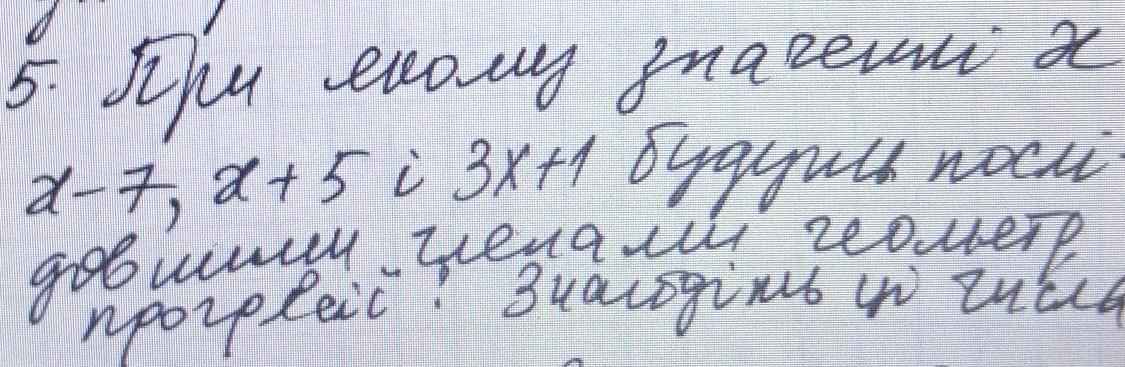 5. При якому значенні x
x-7, x+5 і 3x+1 будуть послі-
довними членами геометр
прогресії? Знайдіть ці числа